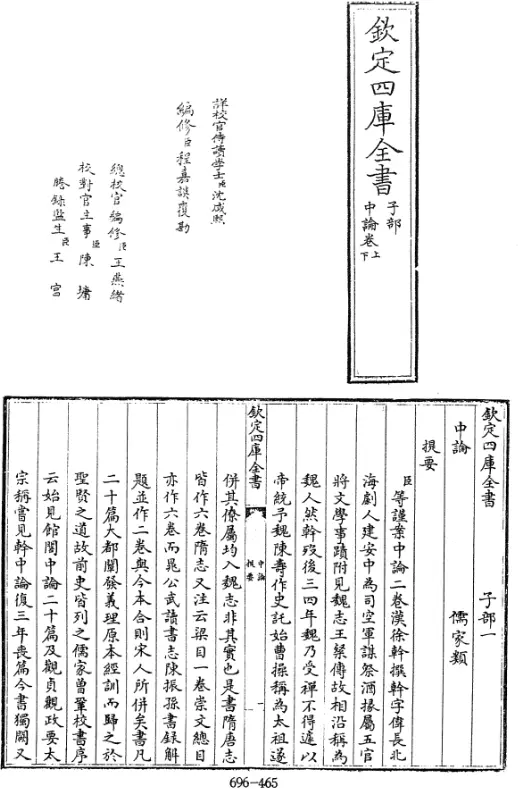 欽定四庫全書
子部
中論卷上
下
詳校官侍讀學士臣沈咸熙
編修臣程嘉謨覆勘
總校官編修臣王燕緒
校對官主事臣陳墉
謄錄監生臣王宫
欽定四庫全書 子部一
中論 儒家類
提要
臣等謹案中論二卷漢徐幹撰幹字偉長北
海劇人建安中為司空軍謀祭酒掾屬五官
將文學事蹟附見魏志王粲傳故相沿稱為
魏人然幹歿後三四年魏乃受禪不得遽以
帝統予魏陳壽作史託始曹操稱為太祖遂
欽定四庫全書
中論
提要
一
併其僚屬均入魏志非其實也是書隋唐志
皆作六卷隋志又注云梁目一卷崇文總目
亦作六卷而晁公武讀書志陳振孫書錄解
題並作二卷與今本合則宋人所併矣書凡
二十篇大都闡發義理原本經訓而歸之於
聖賢之道故前史皆列之儒家曾鞏校書序
云始見館閣中論二十篇及觀貞觀政要太
宗稱嘗見幹中論復三年喪篇今書獨闕又
696-465